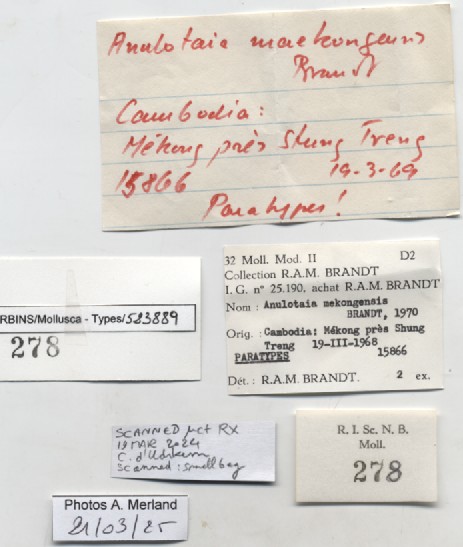 Anulotaia maekongensis
Brandt
Cambodia:
Mékong près Stung Treng
15866 19-3-69
Paratypes!
32 Moll. Mod. II D2
Collection R.A.M. BRANDT
I. G. n° 25.190, achat R.A.M. BRANDT
Nom : Anulotaia mekongensis
BRANDT, 1970
Orig. : Cambodia: Mékong près Shung
Treng 19-III-1968
PARATYPES 15866
Dét. : R.A.M. BRANDT. 2 ex.
RBINS/Mollusca - Types/523889
278
SCANNED µct RX
19 MAR 2024
C. d'Udekem
Scanned : small bag
R. I. Sc. N. B.
Moll.
278
Photos A. Merland
21/03/25